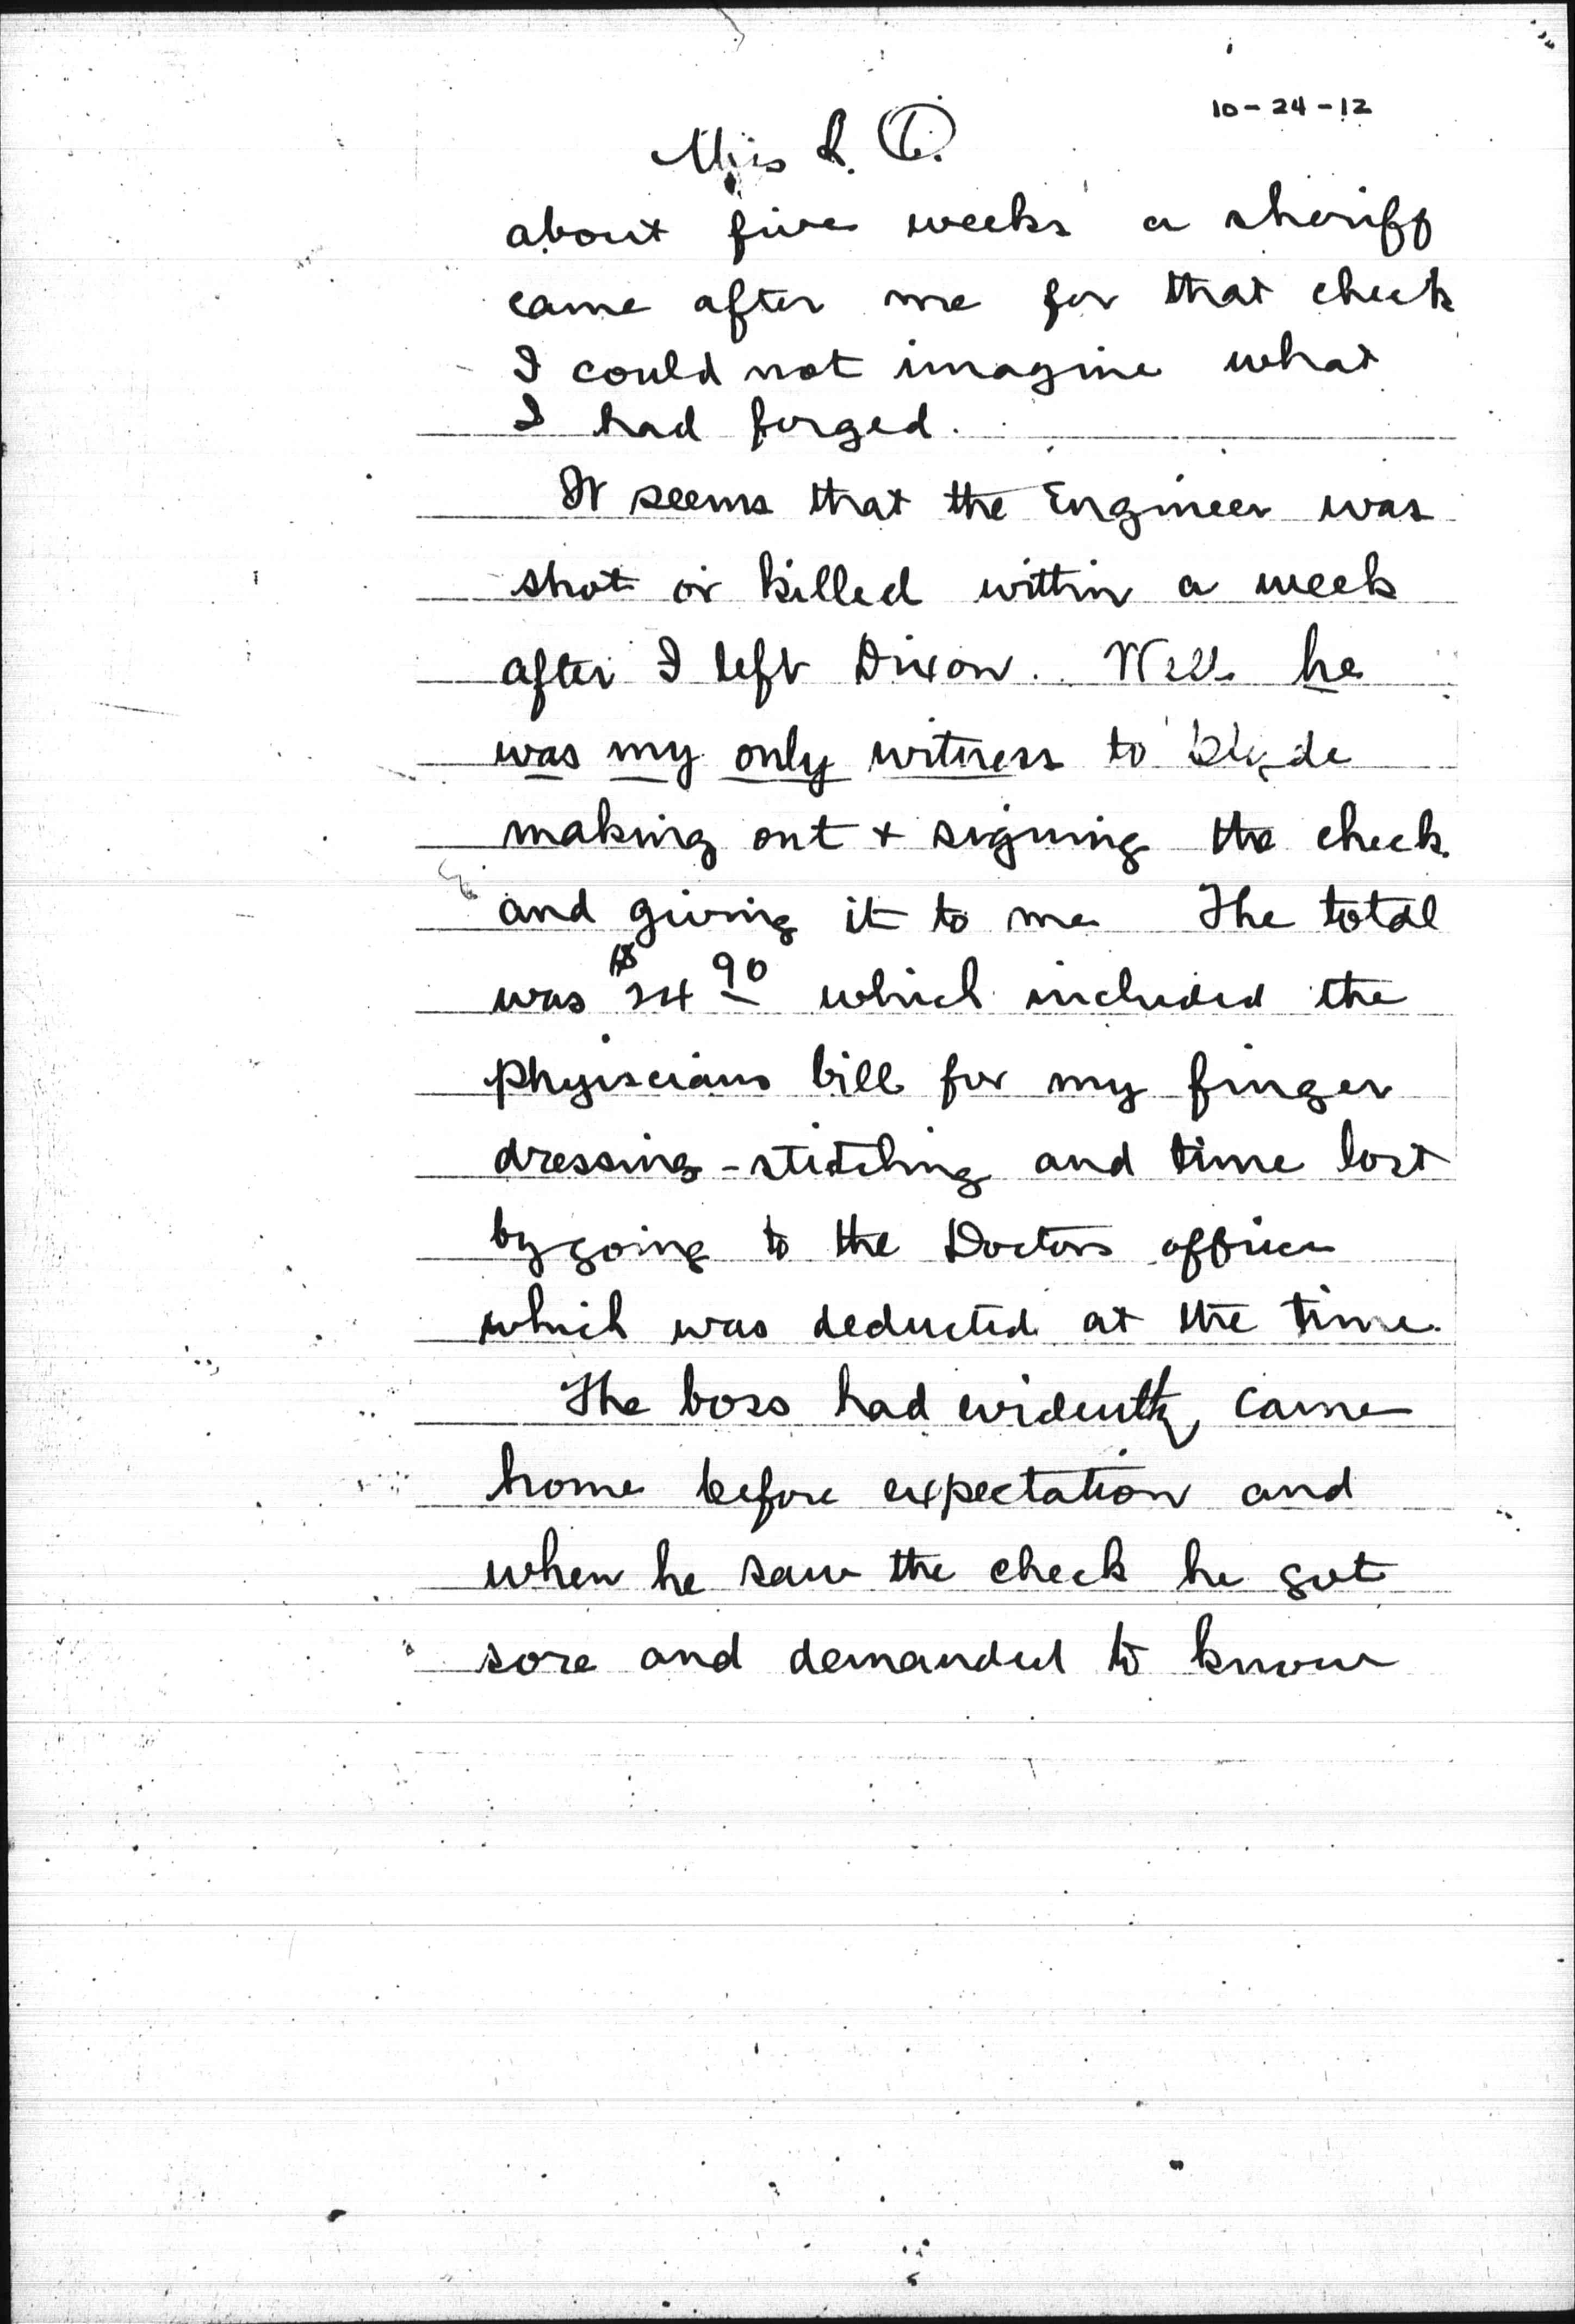 10-24-12
Miss L.
about five weeks a sheriff
came after me for that check
I could not imagine what
I had forged.
It seems that the Engineer was
shot or killed within a week
after I left Dixon. Well he
was my only witness to Clyde
making out + signing the check
and giving it to me The total
was $24 90 which included the
physicians bill for my finger
dressing - stitching and time lost
by going to the Doctors office
which was deducted at the time.
The boss had evidently came
home before expectation and
when he saw the check he got
sore and demanded to know